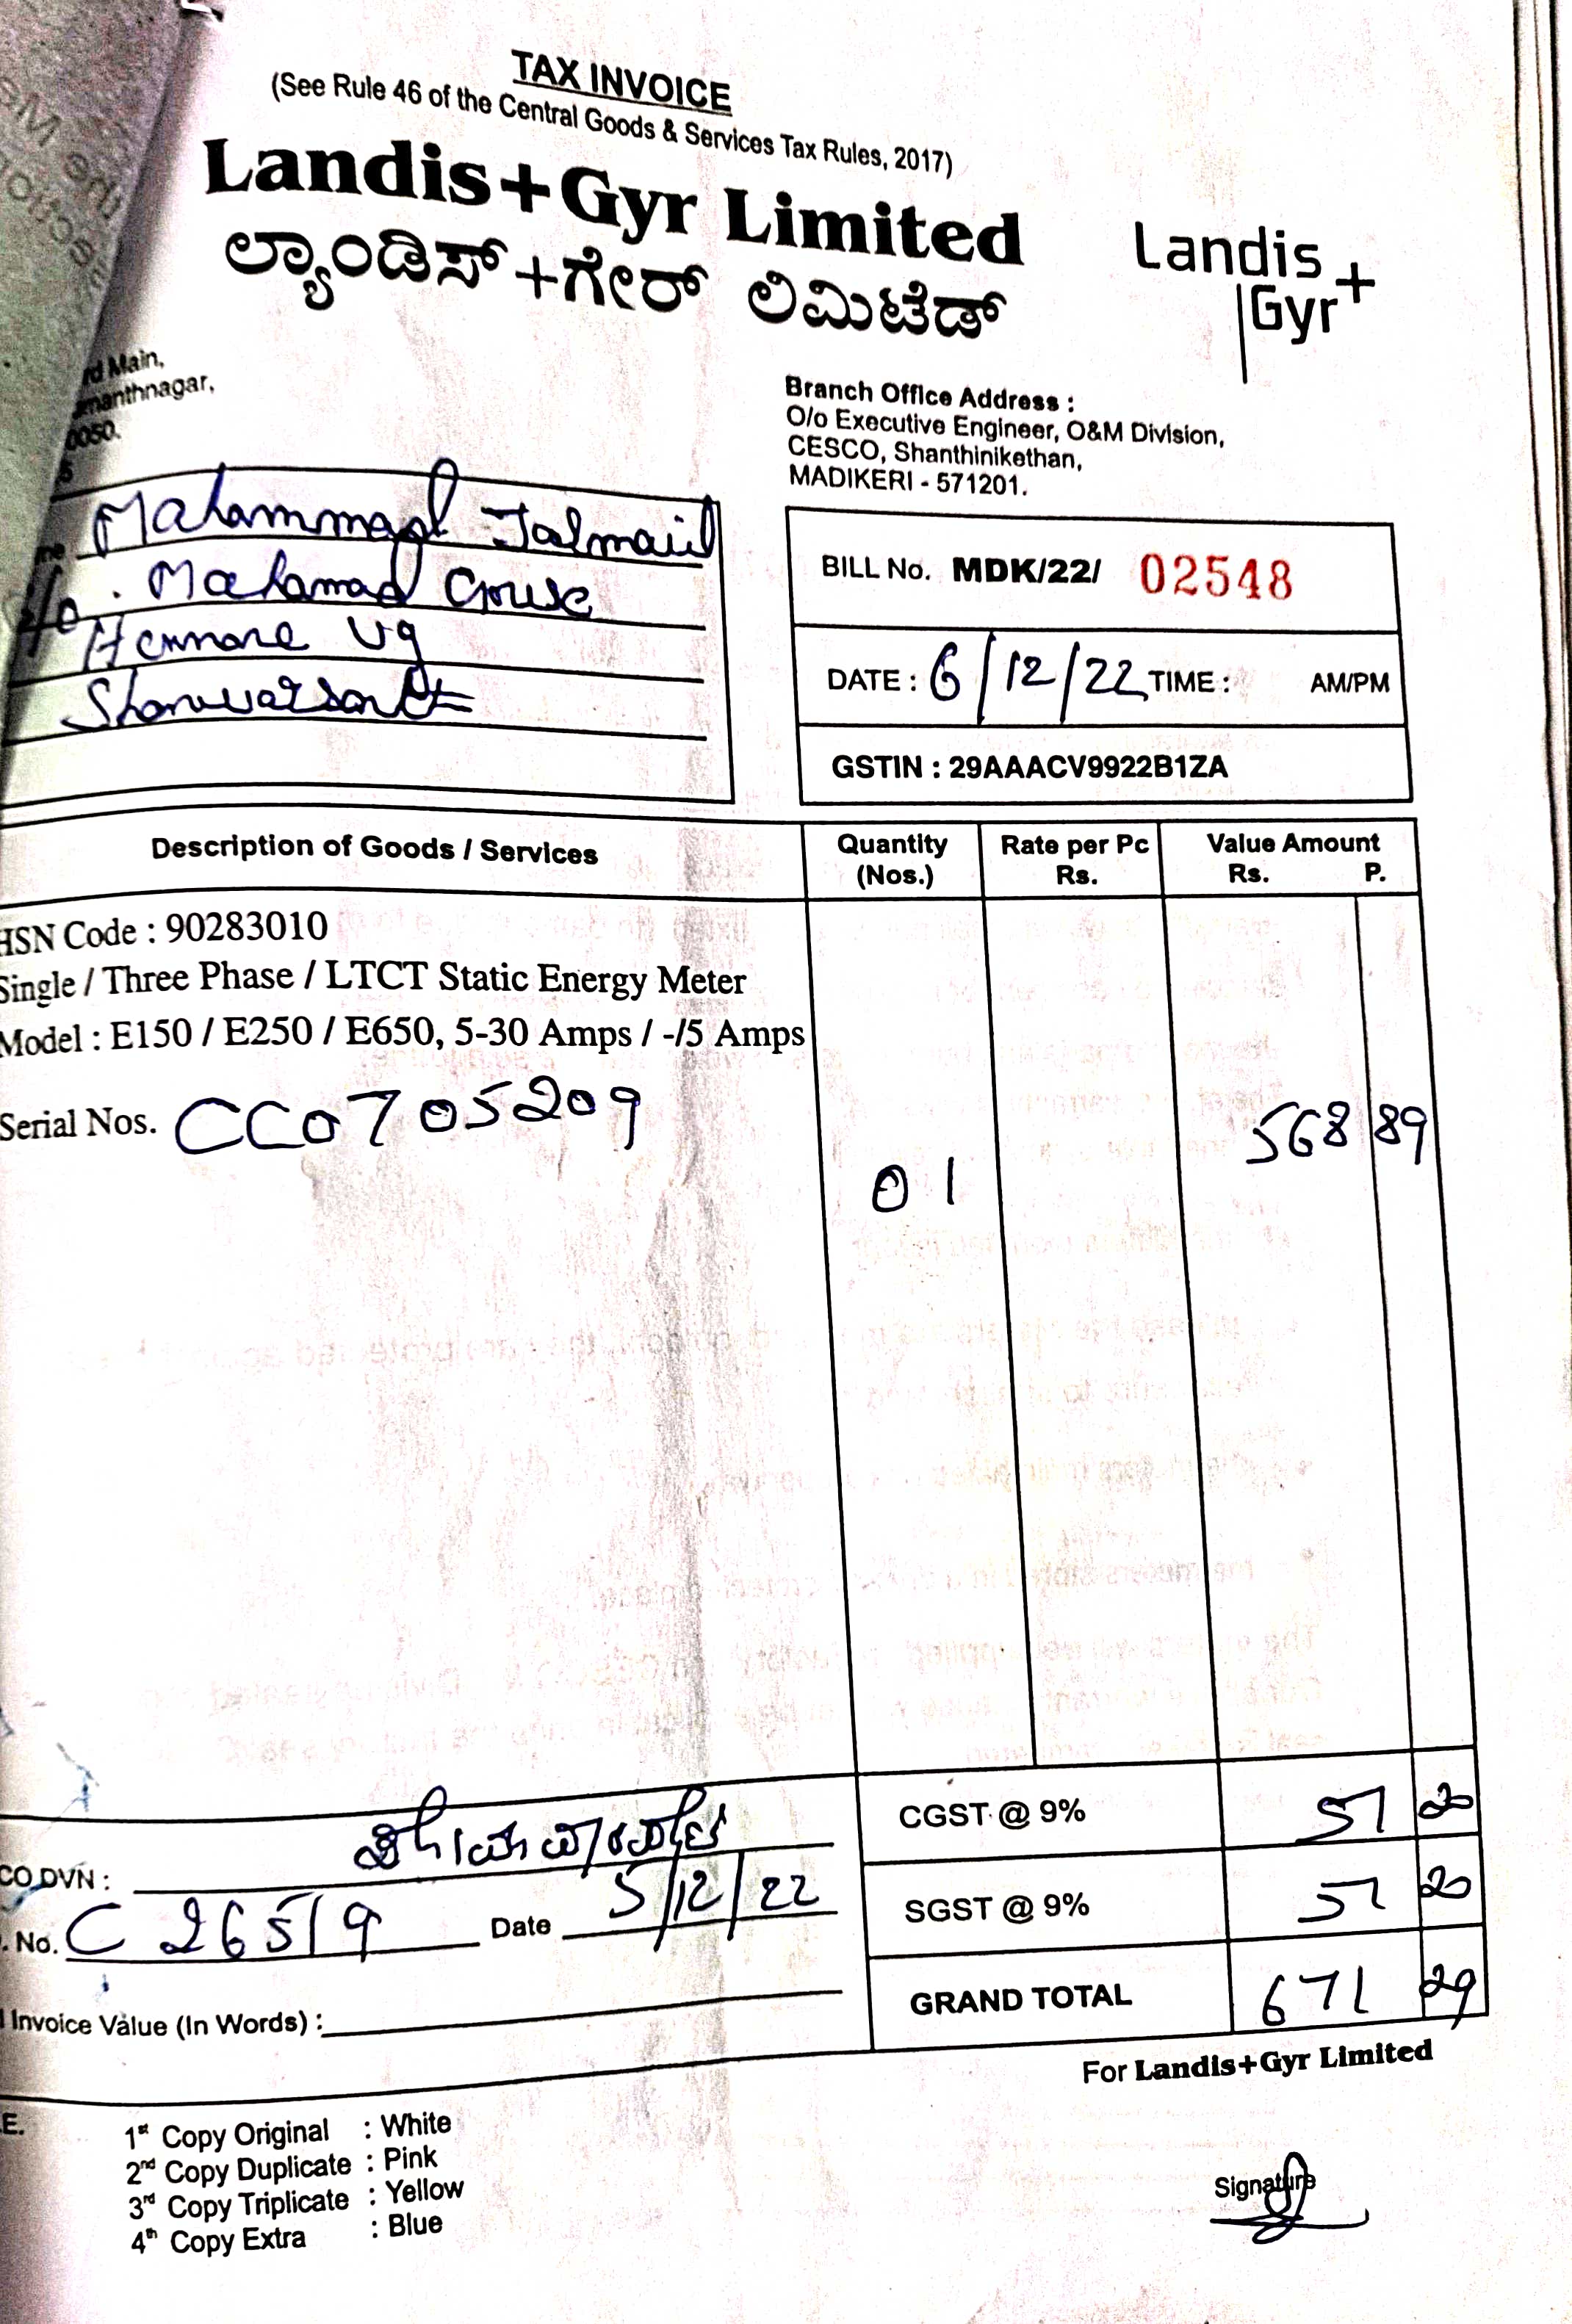 TAX INVOICE
(See Rule 46 of the Central Goods & Services Tax Rules, 2017)
Landis+Gyr Limited
ಲ್ಯಾಂಡಿಸ್+ಗೇರ್ ಲಿಮಿಟೆಡ್
Landis+
Gyr
rd Main,
manthnagar,
0050.
Branch Office Address :
O/o Executive Engineer, O&M Division,
CESCO, Shanthinikethan,
MADIKERI - 571201.
Mahammad Jalmaiil
S/o . Mahamad Gouse
Hennane Vg
Shanuvarsanthe
BILL No. MDK/22/ 02548
DATE : 6/12/22 TIME : AM/PM
GSTIN : 29AAACV9922B1ZA
Description of Goods / Services Quantity (Nos.) Rate per Pc Rs. Value Amount Rs. P.
HSN Code : 90283010
Single / Three Phase / LTCT Static Energy Meter
Model : E150 / E250 / E650, 5-30 Amps / -/5 Amps
Serial Nos. CC0705209
01 568 89
CGST @ 9% 51 20
CO DVN :
SGST @ 9% 51 20
. No. C 26519 Date 5/12/22
GRAND TOTAL 671 29
Invoice Value (In Words) :
For Landis+Gyr Limited
E.
1st Copy Original : White
2nd Copy Duplicate : Pink
3rd Copy Triplicate : Yellow
4th Copy Extra : Blue
Signature